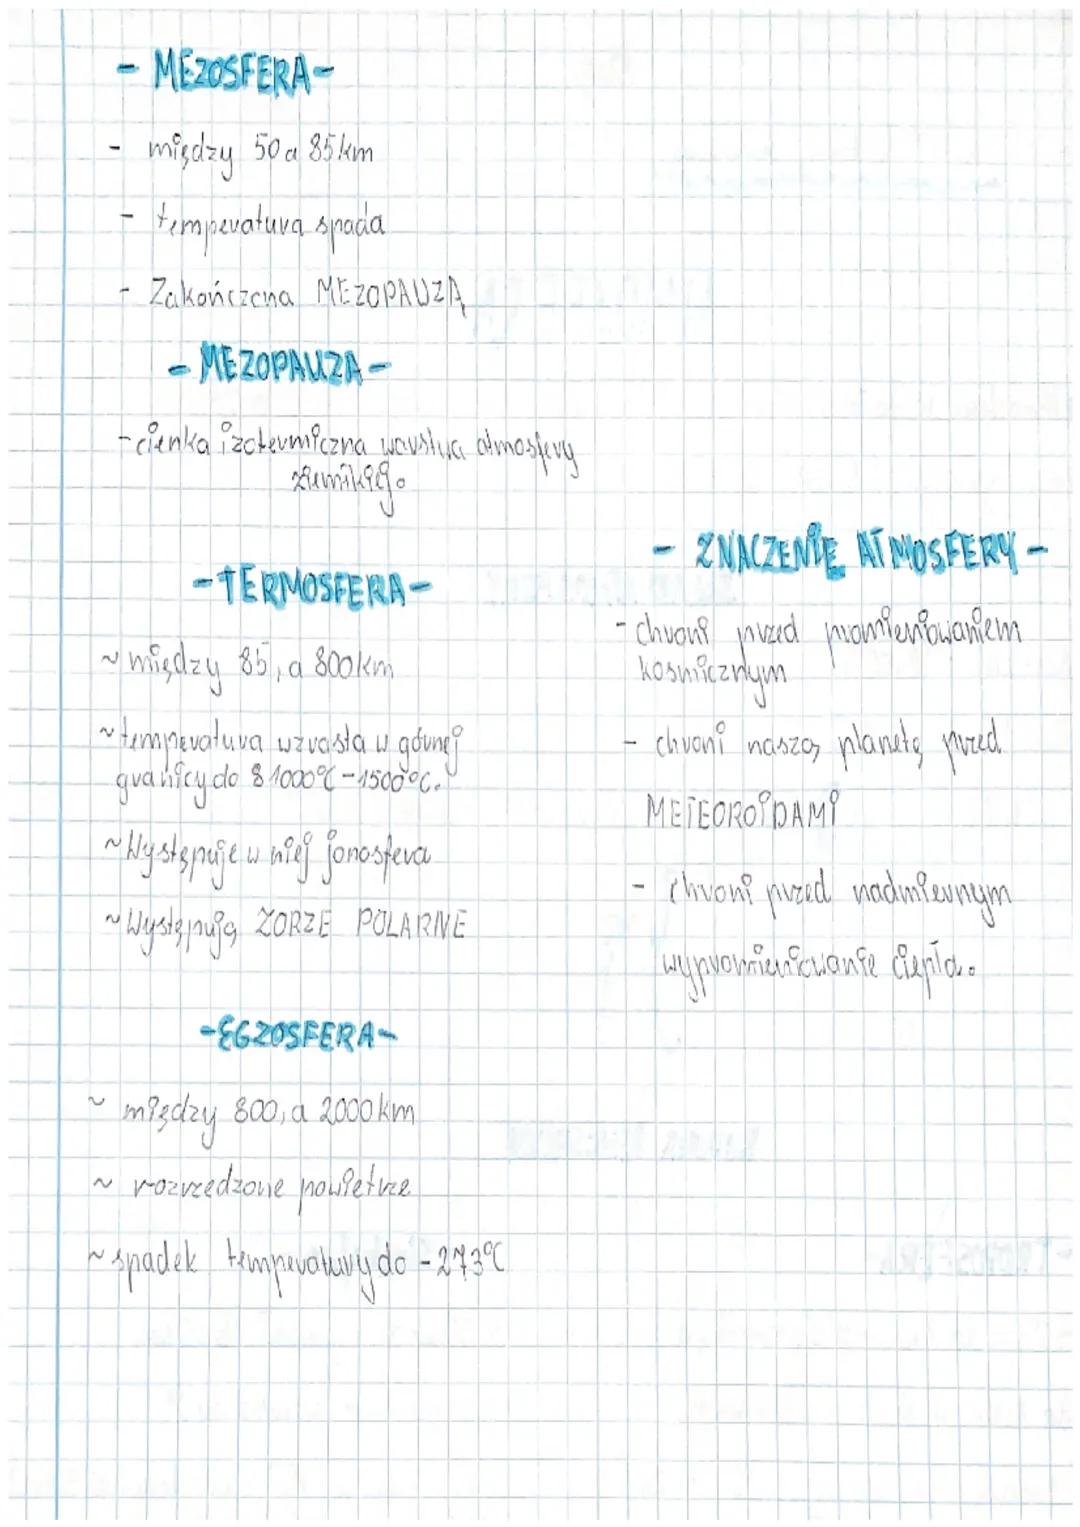 - MEZOSFERA -
- między 50 a 85 km
- temperatura spada
- Zakończona MEZOPAUZĄ
- MEZOPAUZA -
- cienka izotermiczna warstwa atmosfery
ziemskiej.
- TERMOSFERA -
~ między 85, a 800 km
~ temperatura wzrasta w górnej
granicy do 1000°C - 1500°C.
~ Występuje w niej jonosfera
~ Występują ZORZE POLARNE
- EGZOSFERA -
~ między 800, a 2000 km
~ rozrzedzone powietrze
~ spadek temperatury do -273°C
- ZNACZENIE ATMOSFERY -
- chroni przed promieniowaniem
kosmicznym
- chroni naszą planetę przed
METEOROIDAMI
- chroni przed nadmiernym
wypromieniowanie ciepła.